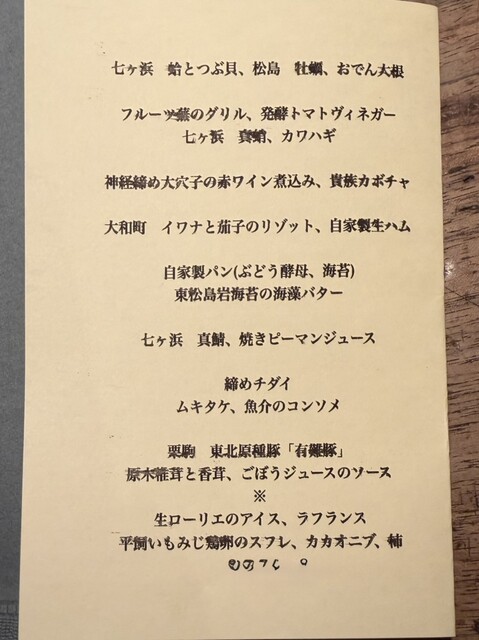 七ヶ浜　蛤とつぶ貝、松島　牡蠣、おでん大根
フルーツ蕪のグリル、発酵トマトヴィネガー
七ヶ浜　真蛸、カワハギ
神経締め大穴子の赤ワイン煮込み、貴族カボチャ
大和町　イワナと茄子のリゾット、自家製生ハム
自家製パン(ぶどう酵母、海苔)
東松島岩海苔の海藻バター
七ヶ浜　真鯖、焼きピーマンジュース
締めチダイ
ムキタケ、魚介のコンソメ
栗駒　東北原種豚「有難豚」
原木椎茸と香茸、ごぼうジュースのソース
※
生ローリエのアイス、ラフランス
平飼いもみじ鶏卵のスフレ、カカオニブ、柿